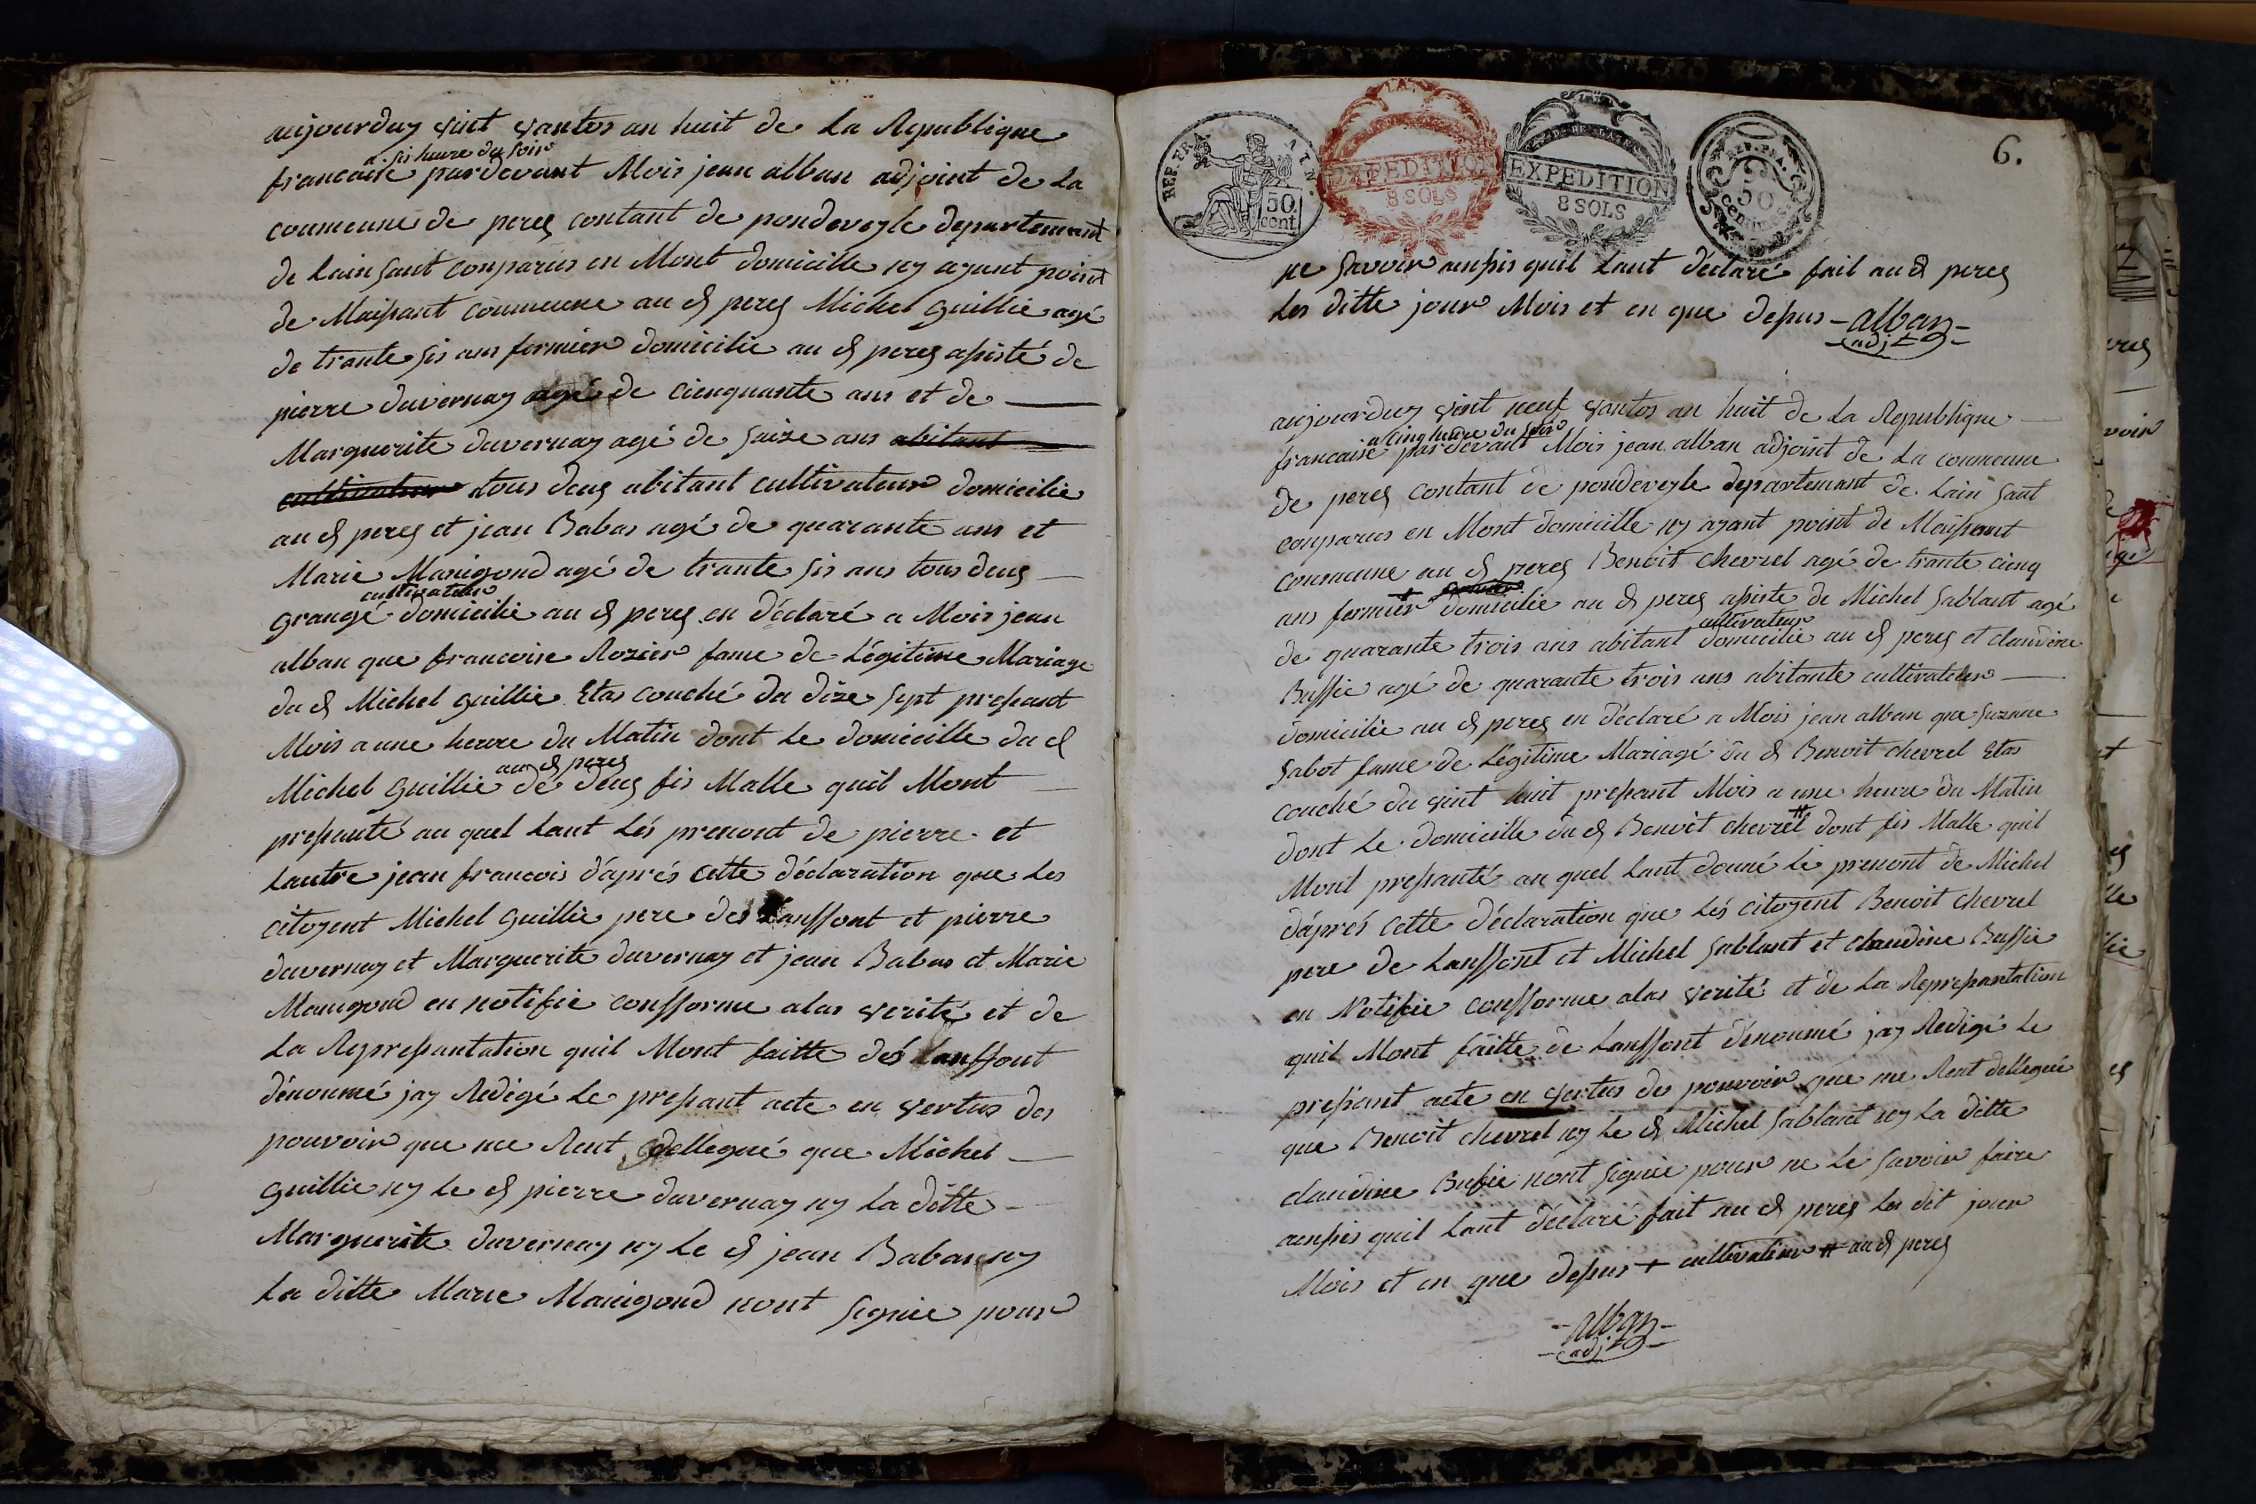 aujourduy vint vantos an huit de La Republique
a sis heure du soir
francaise pardevant Mois jean alban adjoint de La
coumeune de perex contant de pondeveyle departemant
de Lain sont conparus en Mont domicille ny ayant point
de Maisant coumeune au d perex Michel guillie agé
de trante sis ans fermier domicilie au d perex asisté de
pierre duvernay agé de cienquante ans et de
Marguerite duvernay agé de saize ans abitant
cultivateur tous deux abitant cultivateur domicilie
au d perex et jean Babas agé de quarante ans et
Marie Manigond agé de trante sis ans tous deux
cultivateur
grangé domicilie au d perex en déclaré a Mois jean
alban que francoise Rozier fame de Légitime Mariage
du d Michel guillie Etas couché du dize sept presant
Mois a une heure du Matin dont Le domicille du d
au d perex
Michel guillie de deux fis Malle quil Mont
presanté au quel Lant Lés prenont de pierre et
Lautre jean francois dáprés cette déclaration que Les
citoyent Michel guillie pere des Lansfont et pierre
duvernay et Marguerite duvernay et jean Babas et Marie
Manigond en notifie consforme alas verité et de
La Represantation quil Mont faitte dés Lansfont
dénoumé jay Redigé Le presant acte en vertus des
pouvoir que me Sont dellegué que Michel
guillie ny Le d pierre duvernay ny La ditte
Marguerite duvernay ny Le d jean Babas ny
La ditte Marie Manigond nont signie pour
REP. FRA NAT.
50 cent
EXPEDITION
8 SOLS
EXPEDITION
8 SOLS
REP. FRA.
50
centimes
6.
ne savoir ansis quil Lant déclaré fait au d perex
Les ditte jour Mois et en que desus - alban -
adjt
aujourduy vint neuf vantos an huit de La Republique
a cinq heure du soir
francaise pardevant Mois jean alban adjoint de La coumeune
de perex contant de pondeveyle departemant de Lain sont
conparus en Mont domicille ny ayant point de Maisont
coumeune au d perex Benoit chevrel agé de trante cienq
ans fermier + domicilie au d perex asiste de Michel sablant agé
cultivateur
de quarante trois ans abitant domicilie au d perex et claudine
Bussie agé de quarante trois ans abitante cultivateur
domicilie au d perex en déclaré a Mois jean alban que suzanne
sabot fame de Légitime Mariagé du d Benoit chevrel Etas
couché du vint huit presant Mois a une heure du Matin
dont Le domicille du d Benoit chevrel # dont fis Malle quil
Mont presanté au quel Lant donné Le prenont de Michel
dáprés cette déclaration que Lés citoyent Benoit chevrel
pere de Lansfont et Michel sablant et claudine Bussie
en Notifie consforme alas verité et de La Represantation
quil Mont faitte de Lansfont dénoumé jay Redigé Le
presant acte en vertus des pouvoir que me Sont dellegué
que Benoit chevrel ny Le d Michel sablant ny La ditte
claudine Busie nont signie pour ne Le savoir faire
ansis quil Lant déclaré fait au d perex Les dit jour
Mois et en que desus + cultivateur # au d perex
- alban -
adjt